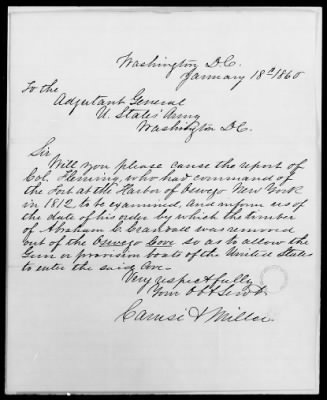 Washington D.C.
January 18th 1860
To the
Adjutant General
U. States Army
Washington D.C.
Sir,
Will you please cause the report of
Col. Fleming, who had command of
the Fort at the Harbor of Oswego New York
in 1812 to be examined, and inform us of
the date of his order by which the timber
of Abraham C. Crandall was removed
out of the Oswego Cove so as to allow the
Gun or provision boats of the United States
to enter the said
Very respectfully
Your Obt Servt
Carusi & Miller